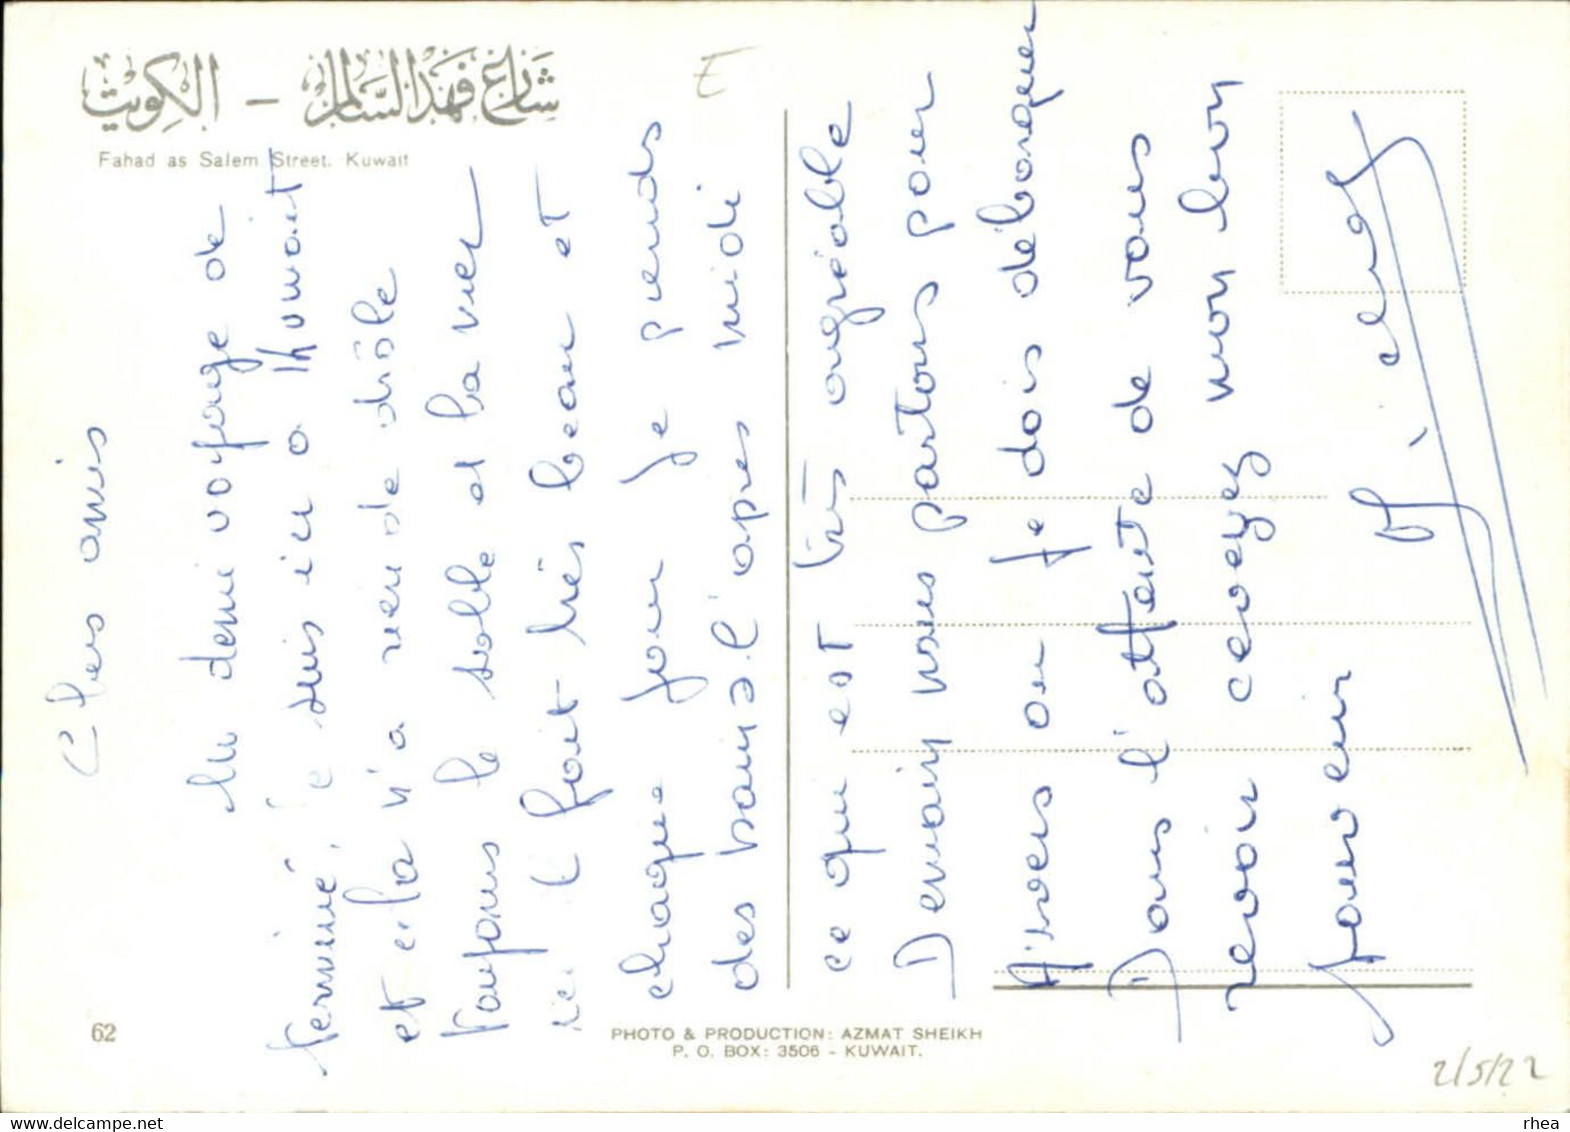 شارع فهد السالم - الكويت
Fahad as Salem Street. Kuwait
E
Chers amis
Un demi voyage de
terminé, je suis ici a Kuwait
et cela n'a rien de drôle
toujours le sable et la mer
ici il fait très beau et
chaque jour je prends
des bains l'apres midi
ce qui est très agréable
Demain nous partons pour
ou je dois débarquer
Dans l'attente de vous
revoir recevez mon bon
souvenir
62
PHOTO & PRODUCTION: AZMAT SHEIKH
P. O. BOX: 3506 - KUWAIT.
2/5/22
www.delcampe.net
rhea